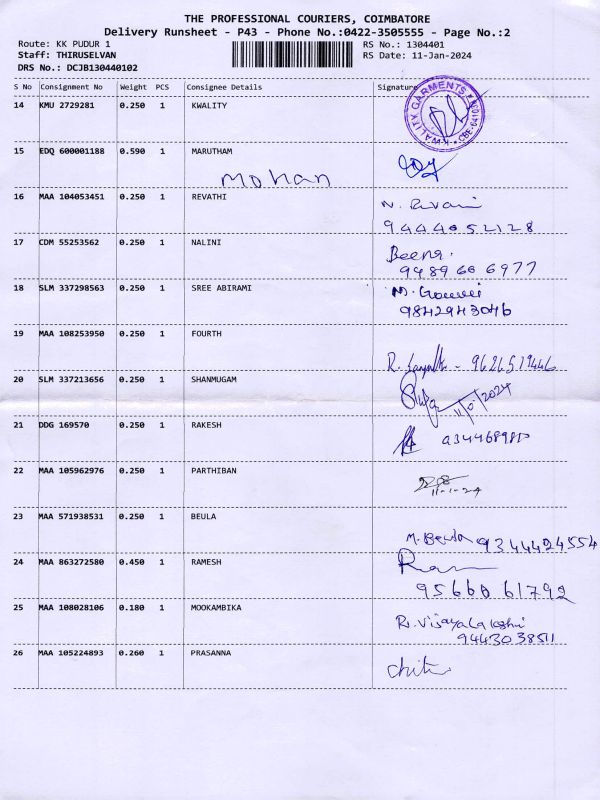 THE PROFESSIONAL COURIERS, COIMBATORE
Delivery Runsheet - P43 - Phone No.:0422-3505555 - Page No.:2
Route: KK PUDUR 1 RS No.: 1304401
Staff: THIRUSELVAN RS Date: 11-Jan-2024
DRS No.: DCJB130440102
S No Consignment No Weight PCS Consignee Details Signature
14 KMU 2729281 0.250 1 KWALITY
15 EDQ 600001188 0.590 1 MARUTHAM
Mohan
16 MAA 104053451 0.250 1 REVATHI
9444052128
17 CDM 55253562 0.250 1 NALINI Beena.
9489606977
18 SLM 337298563 0.250 1 SREE ABIRAMI M. Gowri
9842943046
19 MAA 108253950 0.250 1 FOURTH
R. 9626519446
20 SLM 337213656 0.250 1 SHANMUGAM
11/01/2024
21 DDG 169570 0.250 1 RAKESH
22 MAA 105962976 0.250 1 PARTHIBAN
11-1-24
23 MAA 571938531 0.250 1 BEULA M. Beula 9344424554
24 MAA 863272580 0.450 1 RAMESH
9566061792
25 MAA 108028106 0.180 1 MOOKAMBIKA R. Vijayalakshmi
9443038511
26 MAA 105224893 0.260 1 PRASANNA